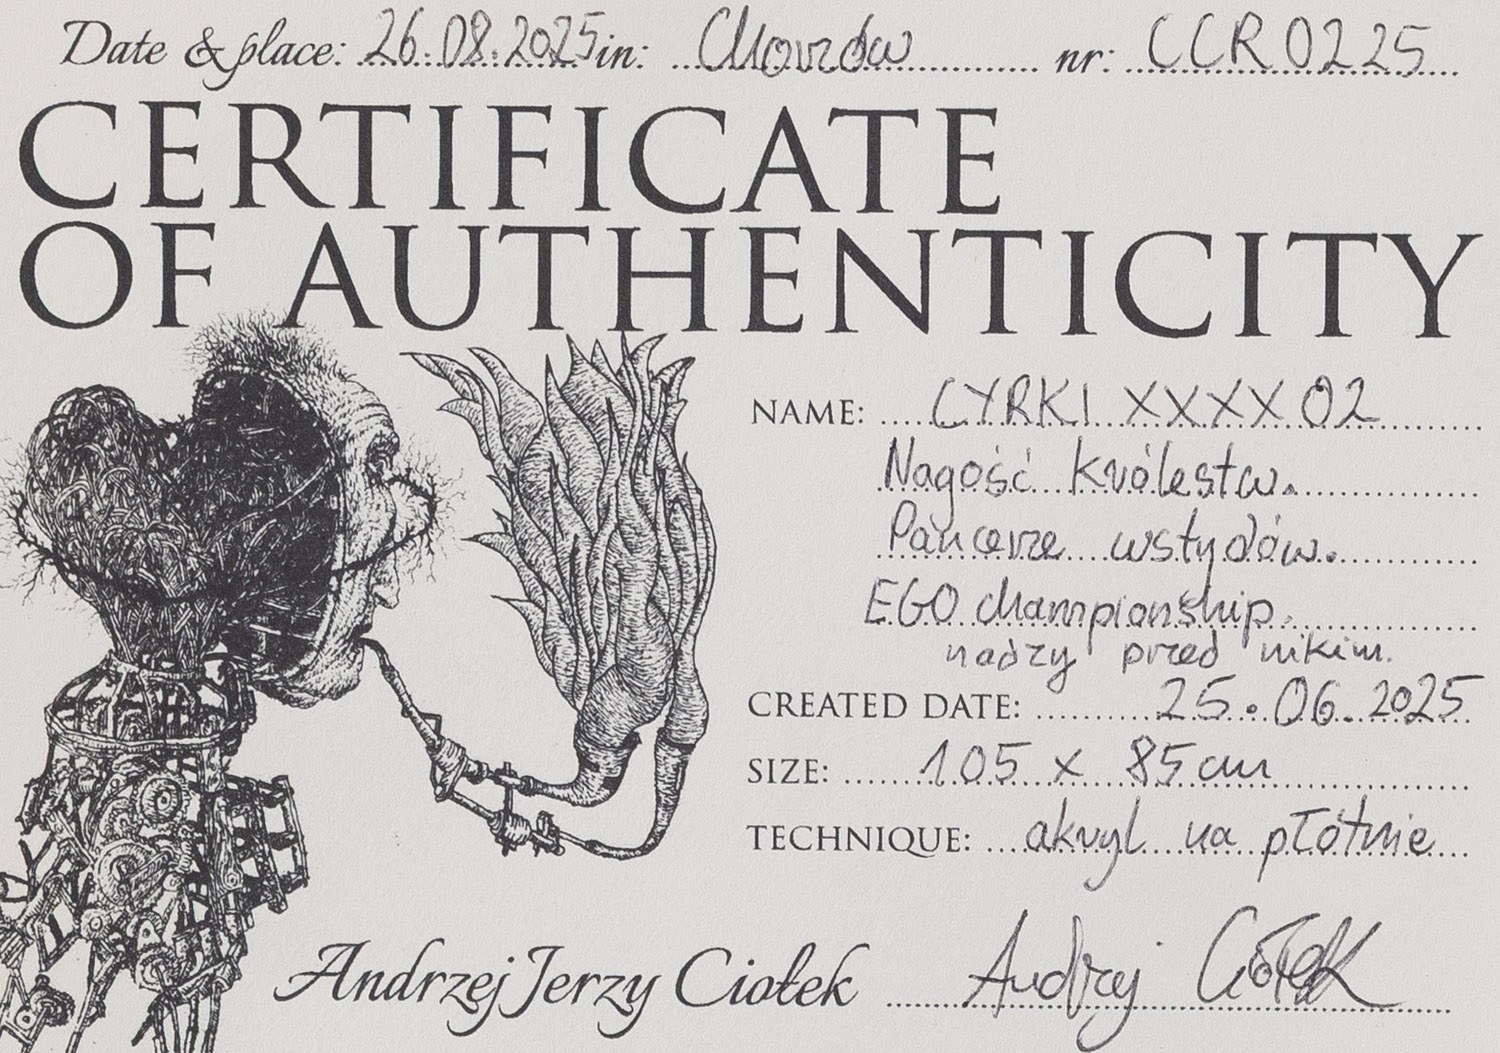 Date & place: 26.08.2025 in: Chorzów nr: CCR0225
CERTIFICATE
OF AUTHENTICITY
NAME: CYRKI XXXX 02
Nagość królestw.
Pancerze wstydów.
EGO championship.
nadzy przed nikim.
CREATED DATE: 25.06.2025
SIZE: 105 x 85 cm
TECHNIQUE: akryl na płótnie
Andrzej Jerzy Ciołek Andrzej Ciołek